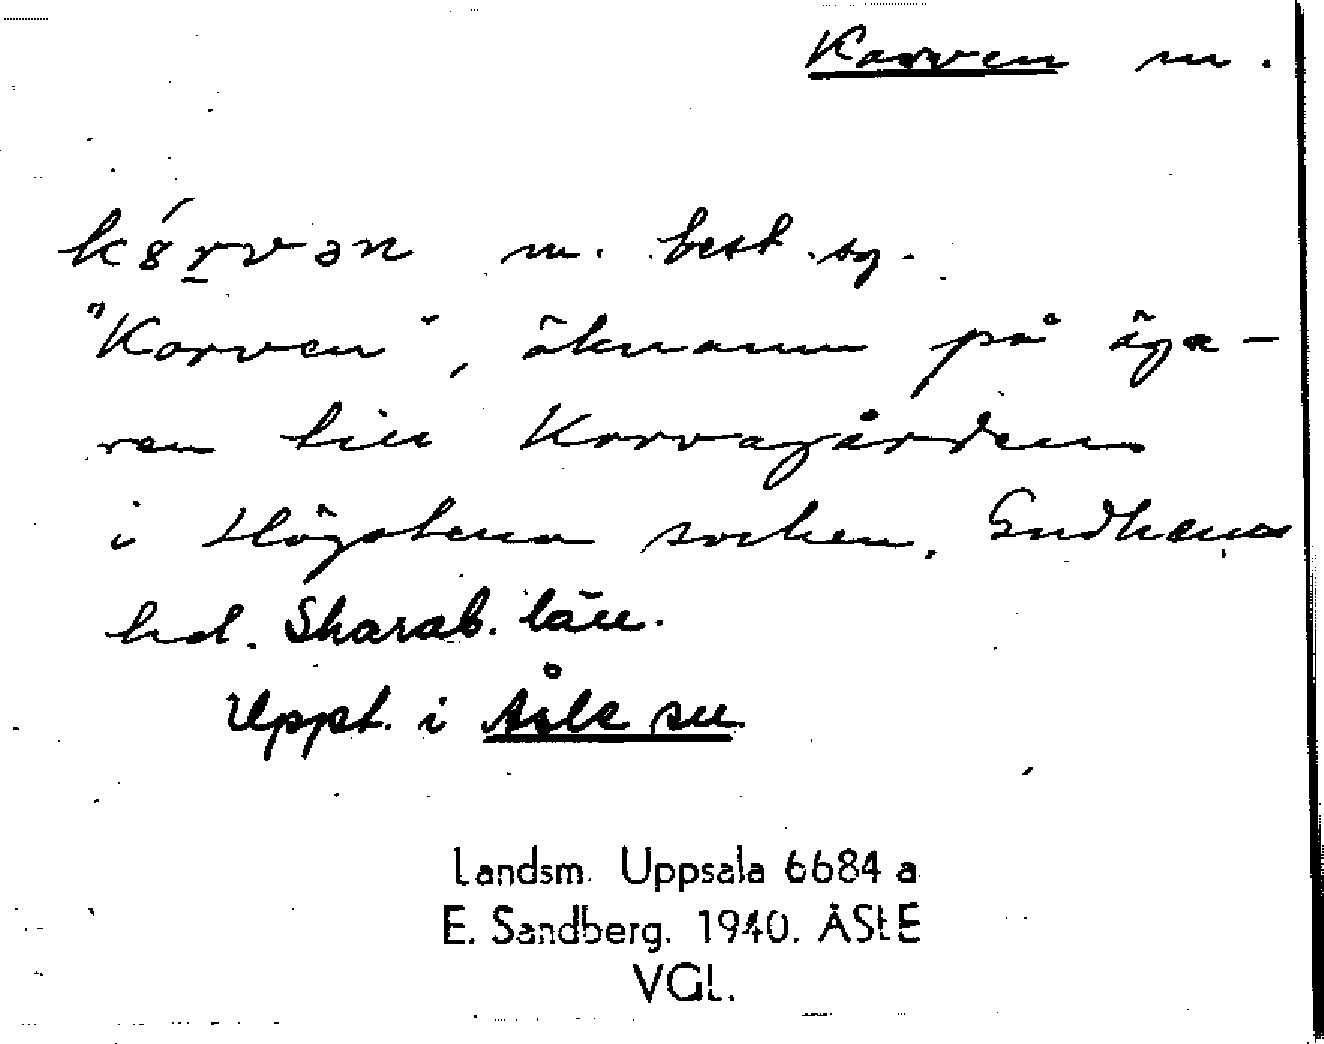 Korven m.
kórvən m. best. sg.
"Korven", öknamn på äga-
ren till Korvagården
i Högstena socken, Gudhems
hd. Skarab. län.
Uppt. i Åsle sn
Landsm. Uppsala 6684 a
E. Sandberg. 1940. ÅSLE
VGL.